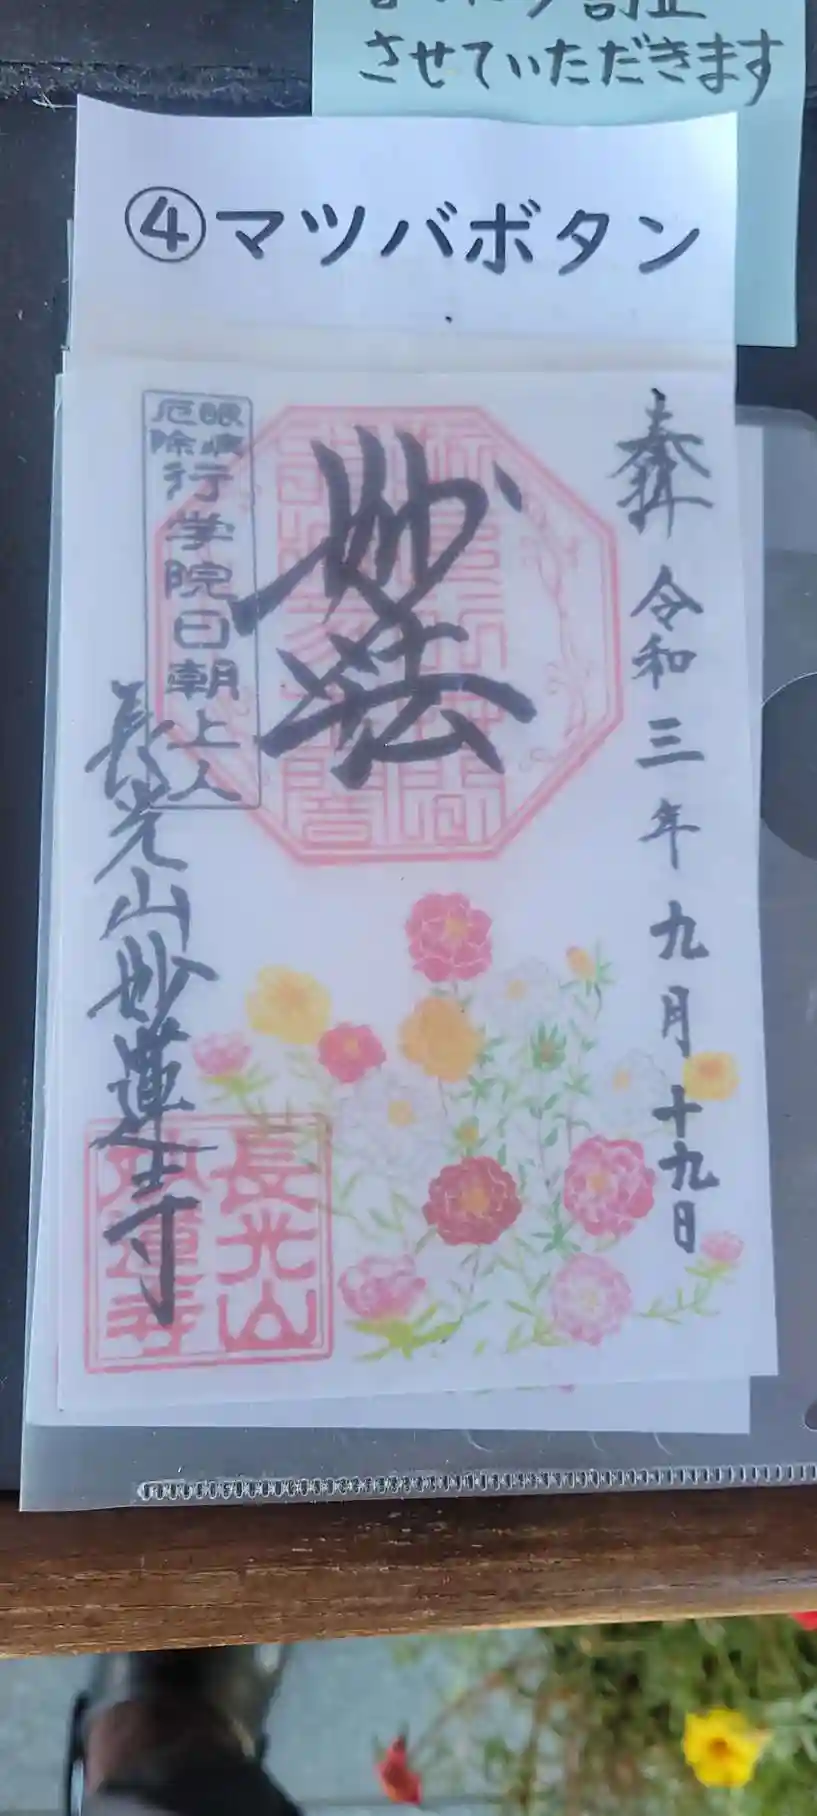 させていただきます
④マツバボタン
奉拝 令和三年九月十九日
妙法
眼病
厄除
行学院日朝上人
長光山妙蓮寺
長光山
妙蓮寺